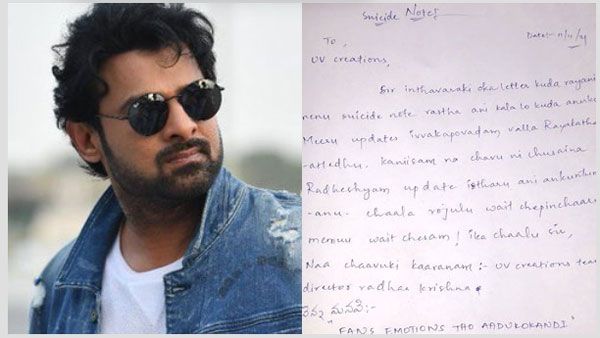 Suicide Notes
Date:- 11/11/21
To,
UV creations,
Sir inthavaraki oka letter kuda rayani
nenu suicide note rastha ani kala lo kuda
Meeru updates ivvakapovadam valla Rayalatha
-atledhu. kaniisam na chavu ni chusaina
Radheshyam update istharu ani ankuntun
-anu. chaala rojulu wait chepinchaaru
memu wait chesam! ika chaalu sir,
Naa chaavuki kaaranam:- UV creations team
director radhae krishna.
మనవి:-
"FANS EMOTIONS THO AADUKOKANDI"